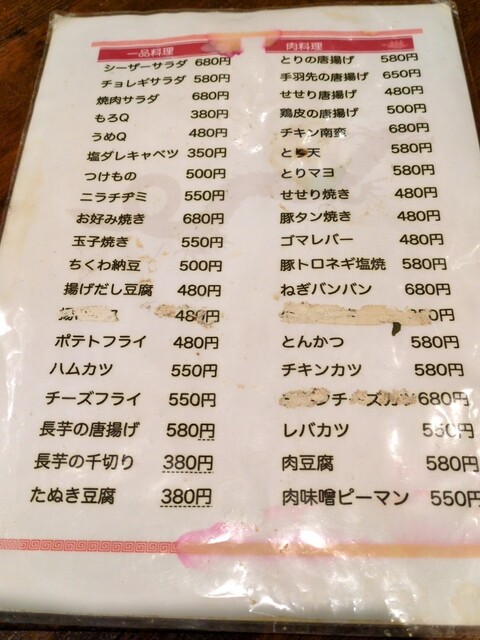 一品料理
シーザーサラダ 680円
チョレギサラダ 580円
焼肉サラダ 680円
もろQ 380円
うめQ 480円
塩ダレキャベツ 350円
つけもの 500円
ニラチヂミ 550円
お好み焼き 680円
玉子焼き 550円
ちくわ納豆 500円
揚げだし豆腐 480円
480円
ポテトフライ 480円
ハムカツ 550円
チーズフライ 550円
長芋の唐揚げ 580円
長芋の千切り 380円
たぬき豆腐 380円
肉料理
とりの唐揚げ 580円
手羽先の唐揚げ 650円
せせり唐揚げ 480円
鶏皮の唐揚げ 500円
チキン南蛮 680円
とり天 580円
とりマヨ 580円
せせり焼き 480円
豚タン焼き 480円
ゴマレバー 480円
豚トロネギ塩焼 580円
ねぎバンバン 680円
円
とんかつ 580円
チキンカツ 580円
680円
レバカツ 550円
肉豆腐 580円
肉味噌ピーマン 550円